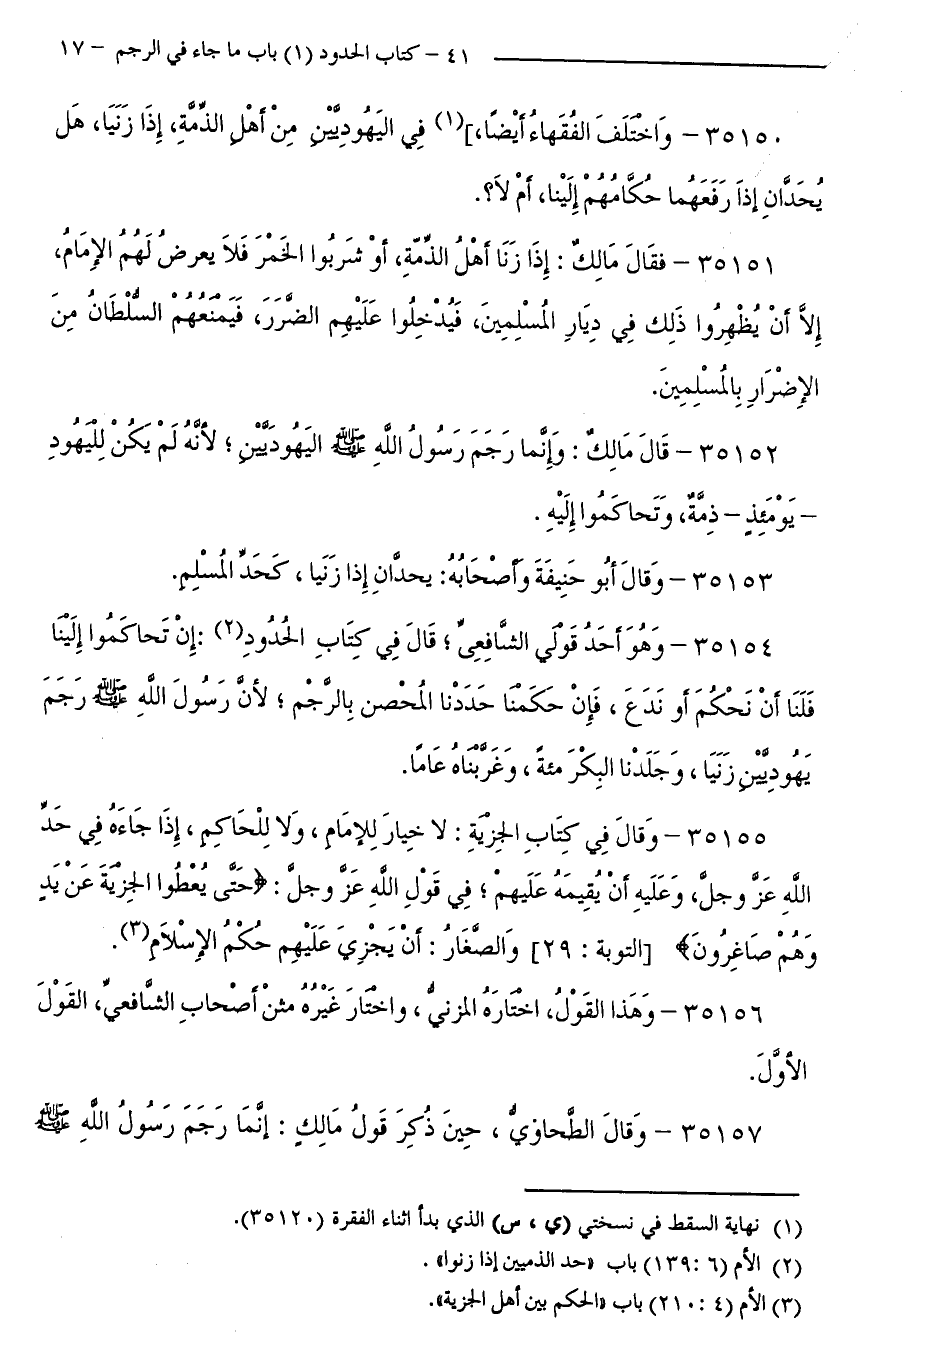 ٤١ – كتاب الحدود (١) باب ما جاء في الرجم – ١٧
٣٥١٥٠ – وَاخْتَلَفَ الفُقَهاءُ أَيْضًا،](١) فِي اليَهُودِيَّيْنِ مِنْ أَهْلِ الذِّمَّةِ، إِذَا زَنَيَا، هَل
يُحَدَّانِ إِذاَ رَفَعَهُما حُكَّامُهُمْ إِلَيْنا، أَمْ لاَ؟.
٣٥١٥١ – فقَالَ مَالِكٌ : إِذَا زَنَا أَهْلُ الذِّمَّةِ، أَوْ شَرَبُوا الخَمْرَ فَلاَ يعرضُ لَهُمُ الإِمَامُ،
إِلاَّ أَنْ يُظْهِرُوا ذَلِكَ فِي دِيَارِ المُسْلِمِينَ، فَيُدْخِلُوا عَلَيْهِم الضَّرَرَ، فَيَمْنَعُهُمْ السُّلْطَانُ مِنَ
الإِضْرَارِ بِالمُسْلِمِينَ.
٣٥١٥٢ – قَالَ مَالِكٌ : وَإِنَّما رَجَمَ رَسُولُ اللَّهِ ﷺ اليَهُودَيَّيْنِ ؛ لأَنَّهُ لَمْ يَكُنْ لِلْيَهُودِ
– يَوْمَئِذٍ – ذِمَّةٌ، وَتَحاكَمُوا إِلَيْهِ .
٣٥١٥٣ – وَقالَ أَبُو حَنِيفَةَ وَأَصْحَابُهُ: يحدَّانِ إِذا زَنَيا ، كَحَدِّ المُسْلِمِ.
٣٥١٥٤ – وَهُوَ أَحَدُ قَوْلَي الشَّافِعِيِّ ؛ قَالَ فِي كِتَابِ الحُدُودِ(٢) :إِنْ تَحاكَمُوا إِلَيْنَا
فَلَنَا أَنْ نَحْكُمَ أَو نَدَعَ ، فَإِنْ حَكَمْنَا حَدَدْنا المُحْصن بِالرَّجْمِ ؛ لأَنَّ رَسُولَ اللَّهِ ﷺ رَجَمَ
يَهُودِيَّيْنِ زَنَيَا ، وَجَلَدْنا البِكْرَ مئةً ، وَغَرَّبْنَاهُ عَامًا.
٣٥١٥٥ – وَقَالَ فِي كِتَابِ الجِزْيَةِ : لا خيارَ لِلإِمَامِ ، وَلا لِلْحَاكِمِ ، إِذَا جَاءَهُ فِي حَدِّ
اللَّهِ عَزَّ وجلَّ، وَعَلَيهِ أَنْ يُقِيمَهُ عَلَيهمْ ؛ فِي قَوْلِ اللَّهِ عَزَّ وجلَّ : ﴿حَتَّى يُعْطُوا الجِزْيَةَ عَنْ يَدٍ
وَهُمْ صَاغِرُونَ﴾ [التوبة : ٢٩] وَالصَّغَارُ : أَنْ يَجْزِيَ عَلَيْهِم حُكْمُ الإِسْلاَمِ(٣).
٣٥١٥٦ – وَهَذا القَوْلُ، اخْتَارَهُ المزنيُّ ، واخْتَارَ غَيْرُهُ مثنْ أَصْحابِ الشَّافعيِّ، القَوْلَ
الأَوَّلَ.
٣٥١٥٧ – وَقالَ الطَّحاوْيُّ ، حِينَ ذُكِرَ قَولُ مَالِكٍ : إِنَّمَا رَجَمَ رَسُولُ اللَّهِ ﷺ
(١) نهاية السقط في نسختي (ي ، س) الذي بدأ اثناء الفقرة (٣٥١٢٠).
(٢) الأم (٦ :١٣٩) باب «حد الذميين إذا زنوا» .
(٣) الأم (٤ : ٢١٠) باب «الحكم بين أهل الجزية».